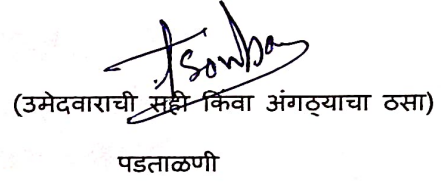 (उमेदवाराची सही किंवा अंगठ्याचा ठसा)
पडताळणी